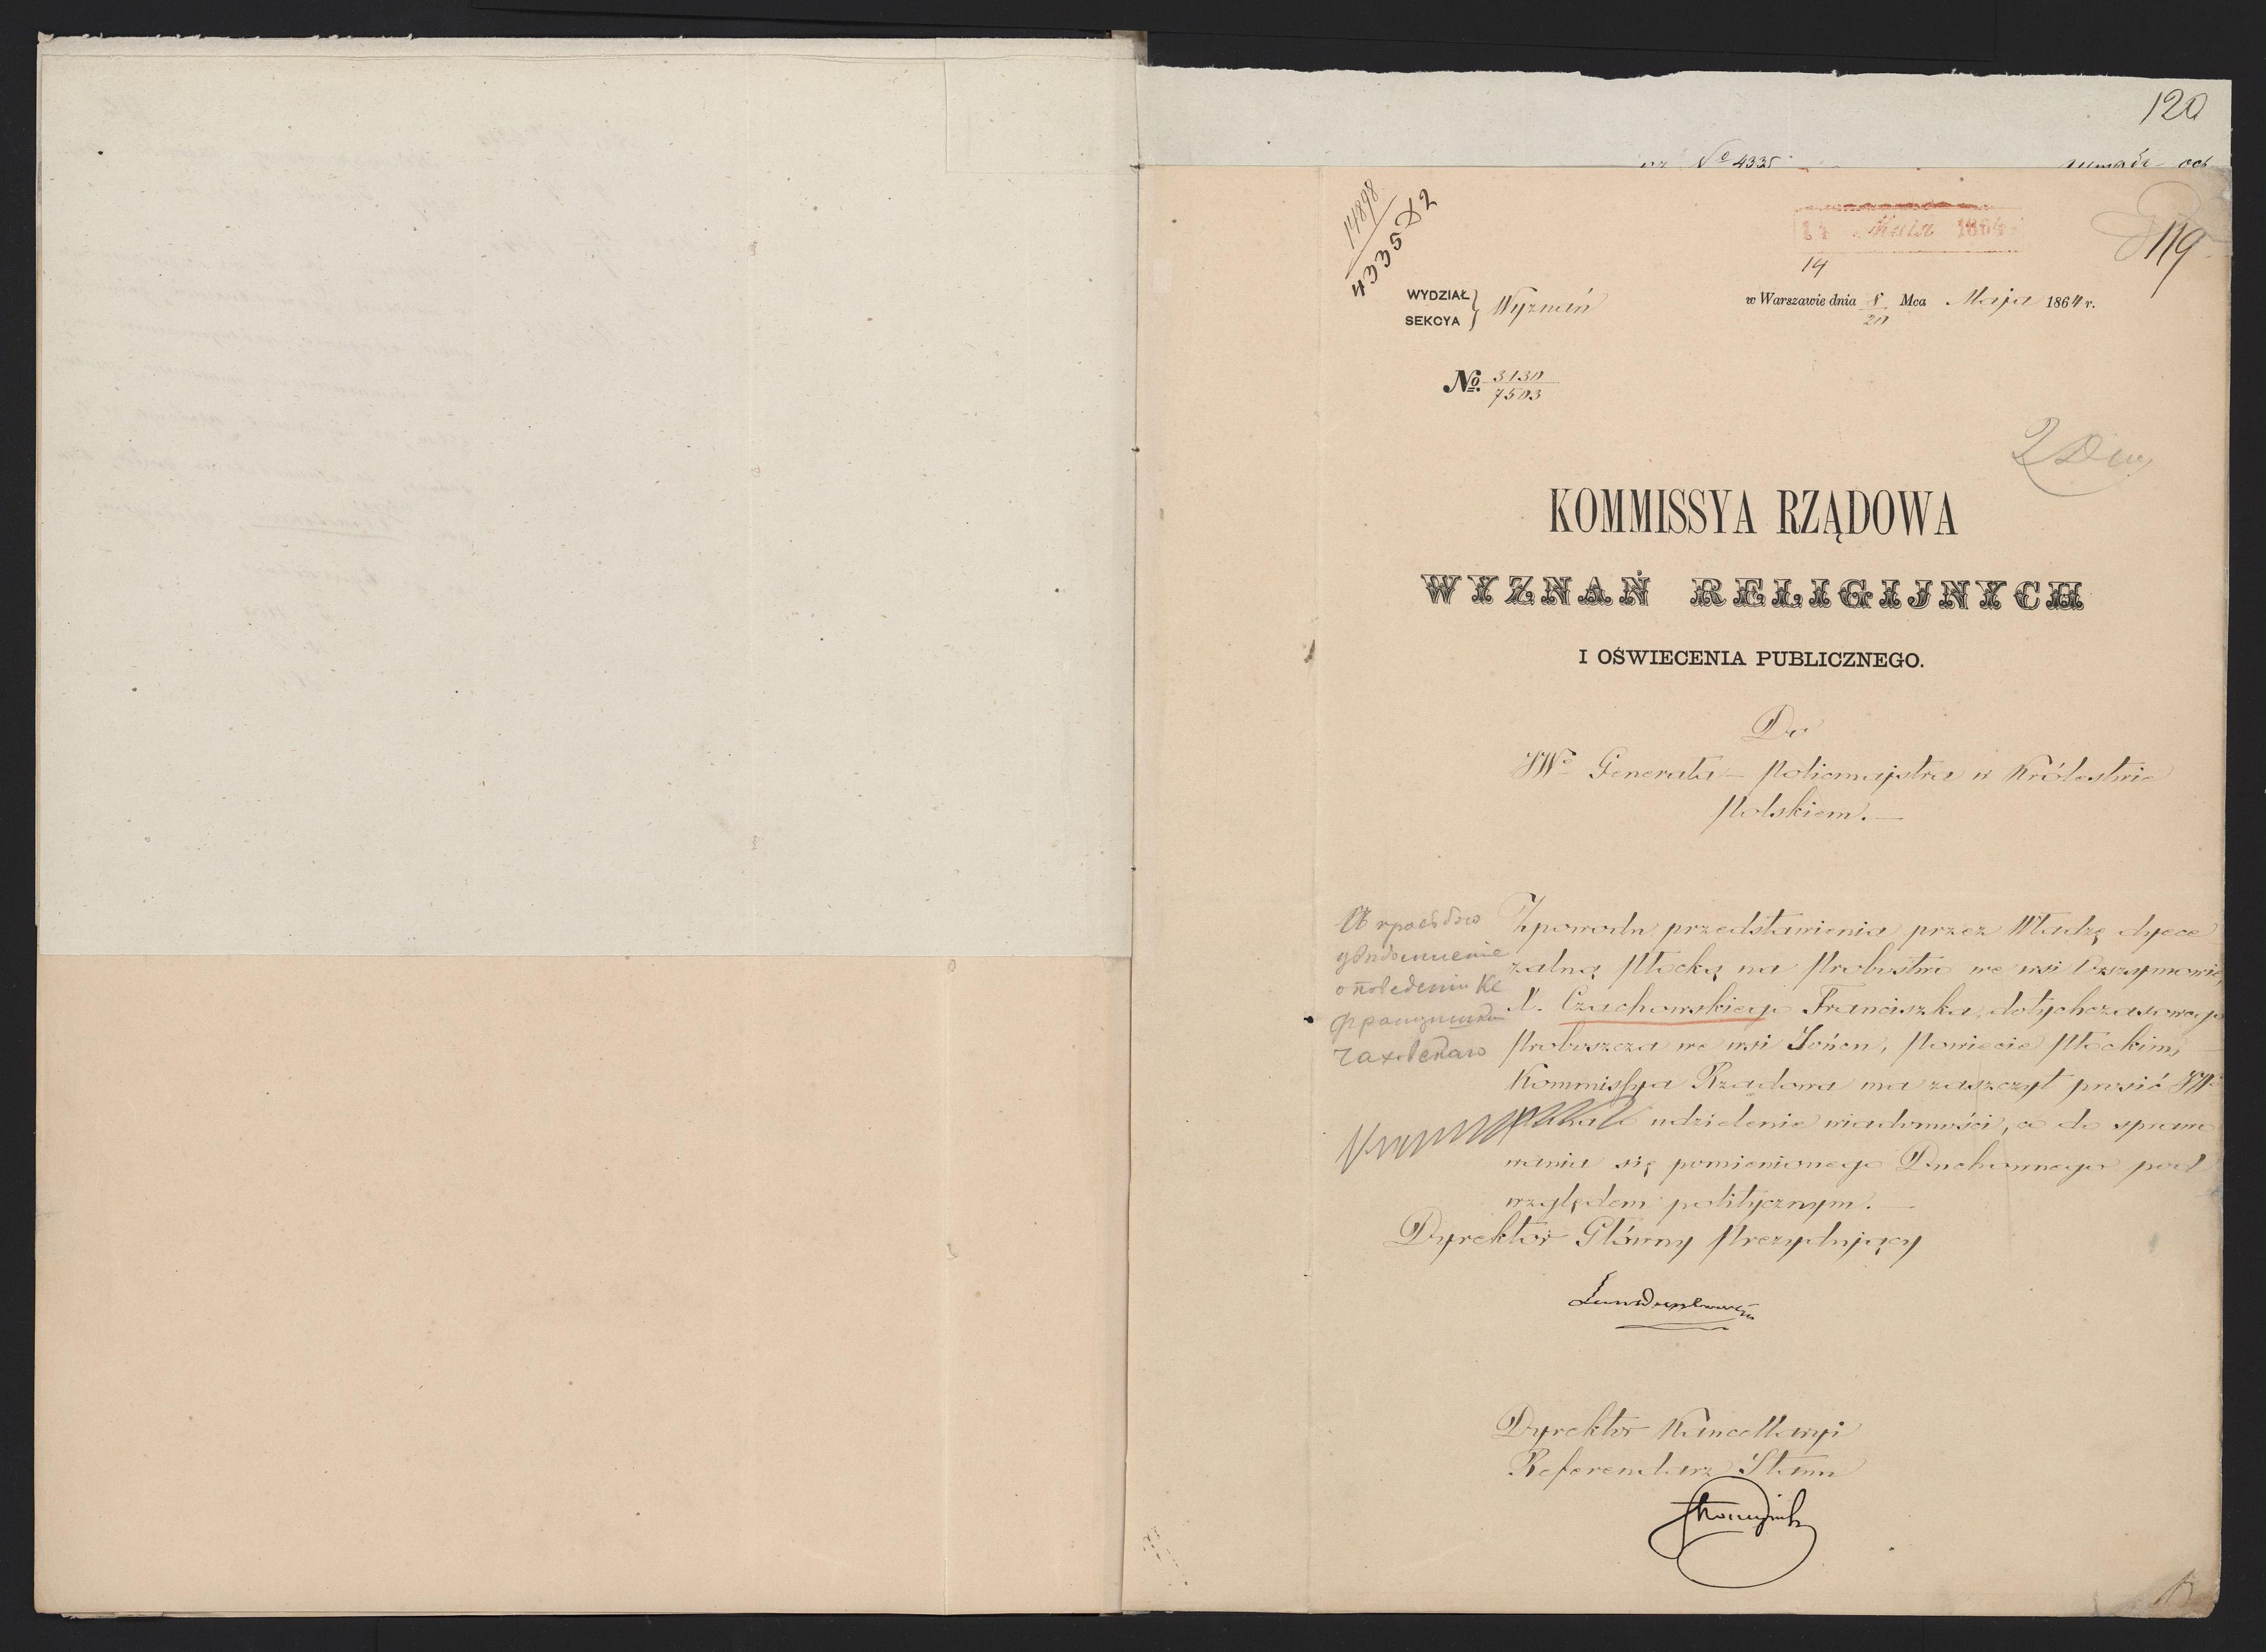 120
No 4335
14898
4335 D2
14 Мая 1864
119
14
WYDZIAŁ
SEKCYA } Wyznań
w Warszawie dnia 8/20 Mca Maja 1864 r.
No. 3130/7503
KOMMISSYA RZĄDOWA
WYZNAŃ RELIGIJNYCH
I OŚWIECENIA PUBLICZNEGO.
Do
JWo Generała-Policmajstra w Królestwie
Polskiem.—
Z powodu przedstawienia przez Władzę dyece
zalną Płocką na Probostwo we wsi
X. Czachowskiego Franciszka, dotychczasowego
Proboszcza we wsi Łónen, Powiecie Płockim,
Kommissya Rządowa ma zaszczyt prosić JWo
udzielenie wiadomości, co do sprawo
wania się pomienionego Duchownego pod
względem politycznym.—
Dyrektor Główny Prezydujący
Dyrektor Kancellaryi
Referendarz Stanu